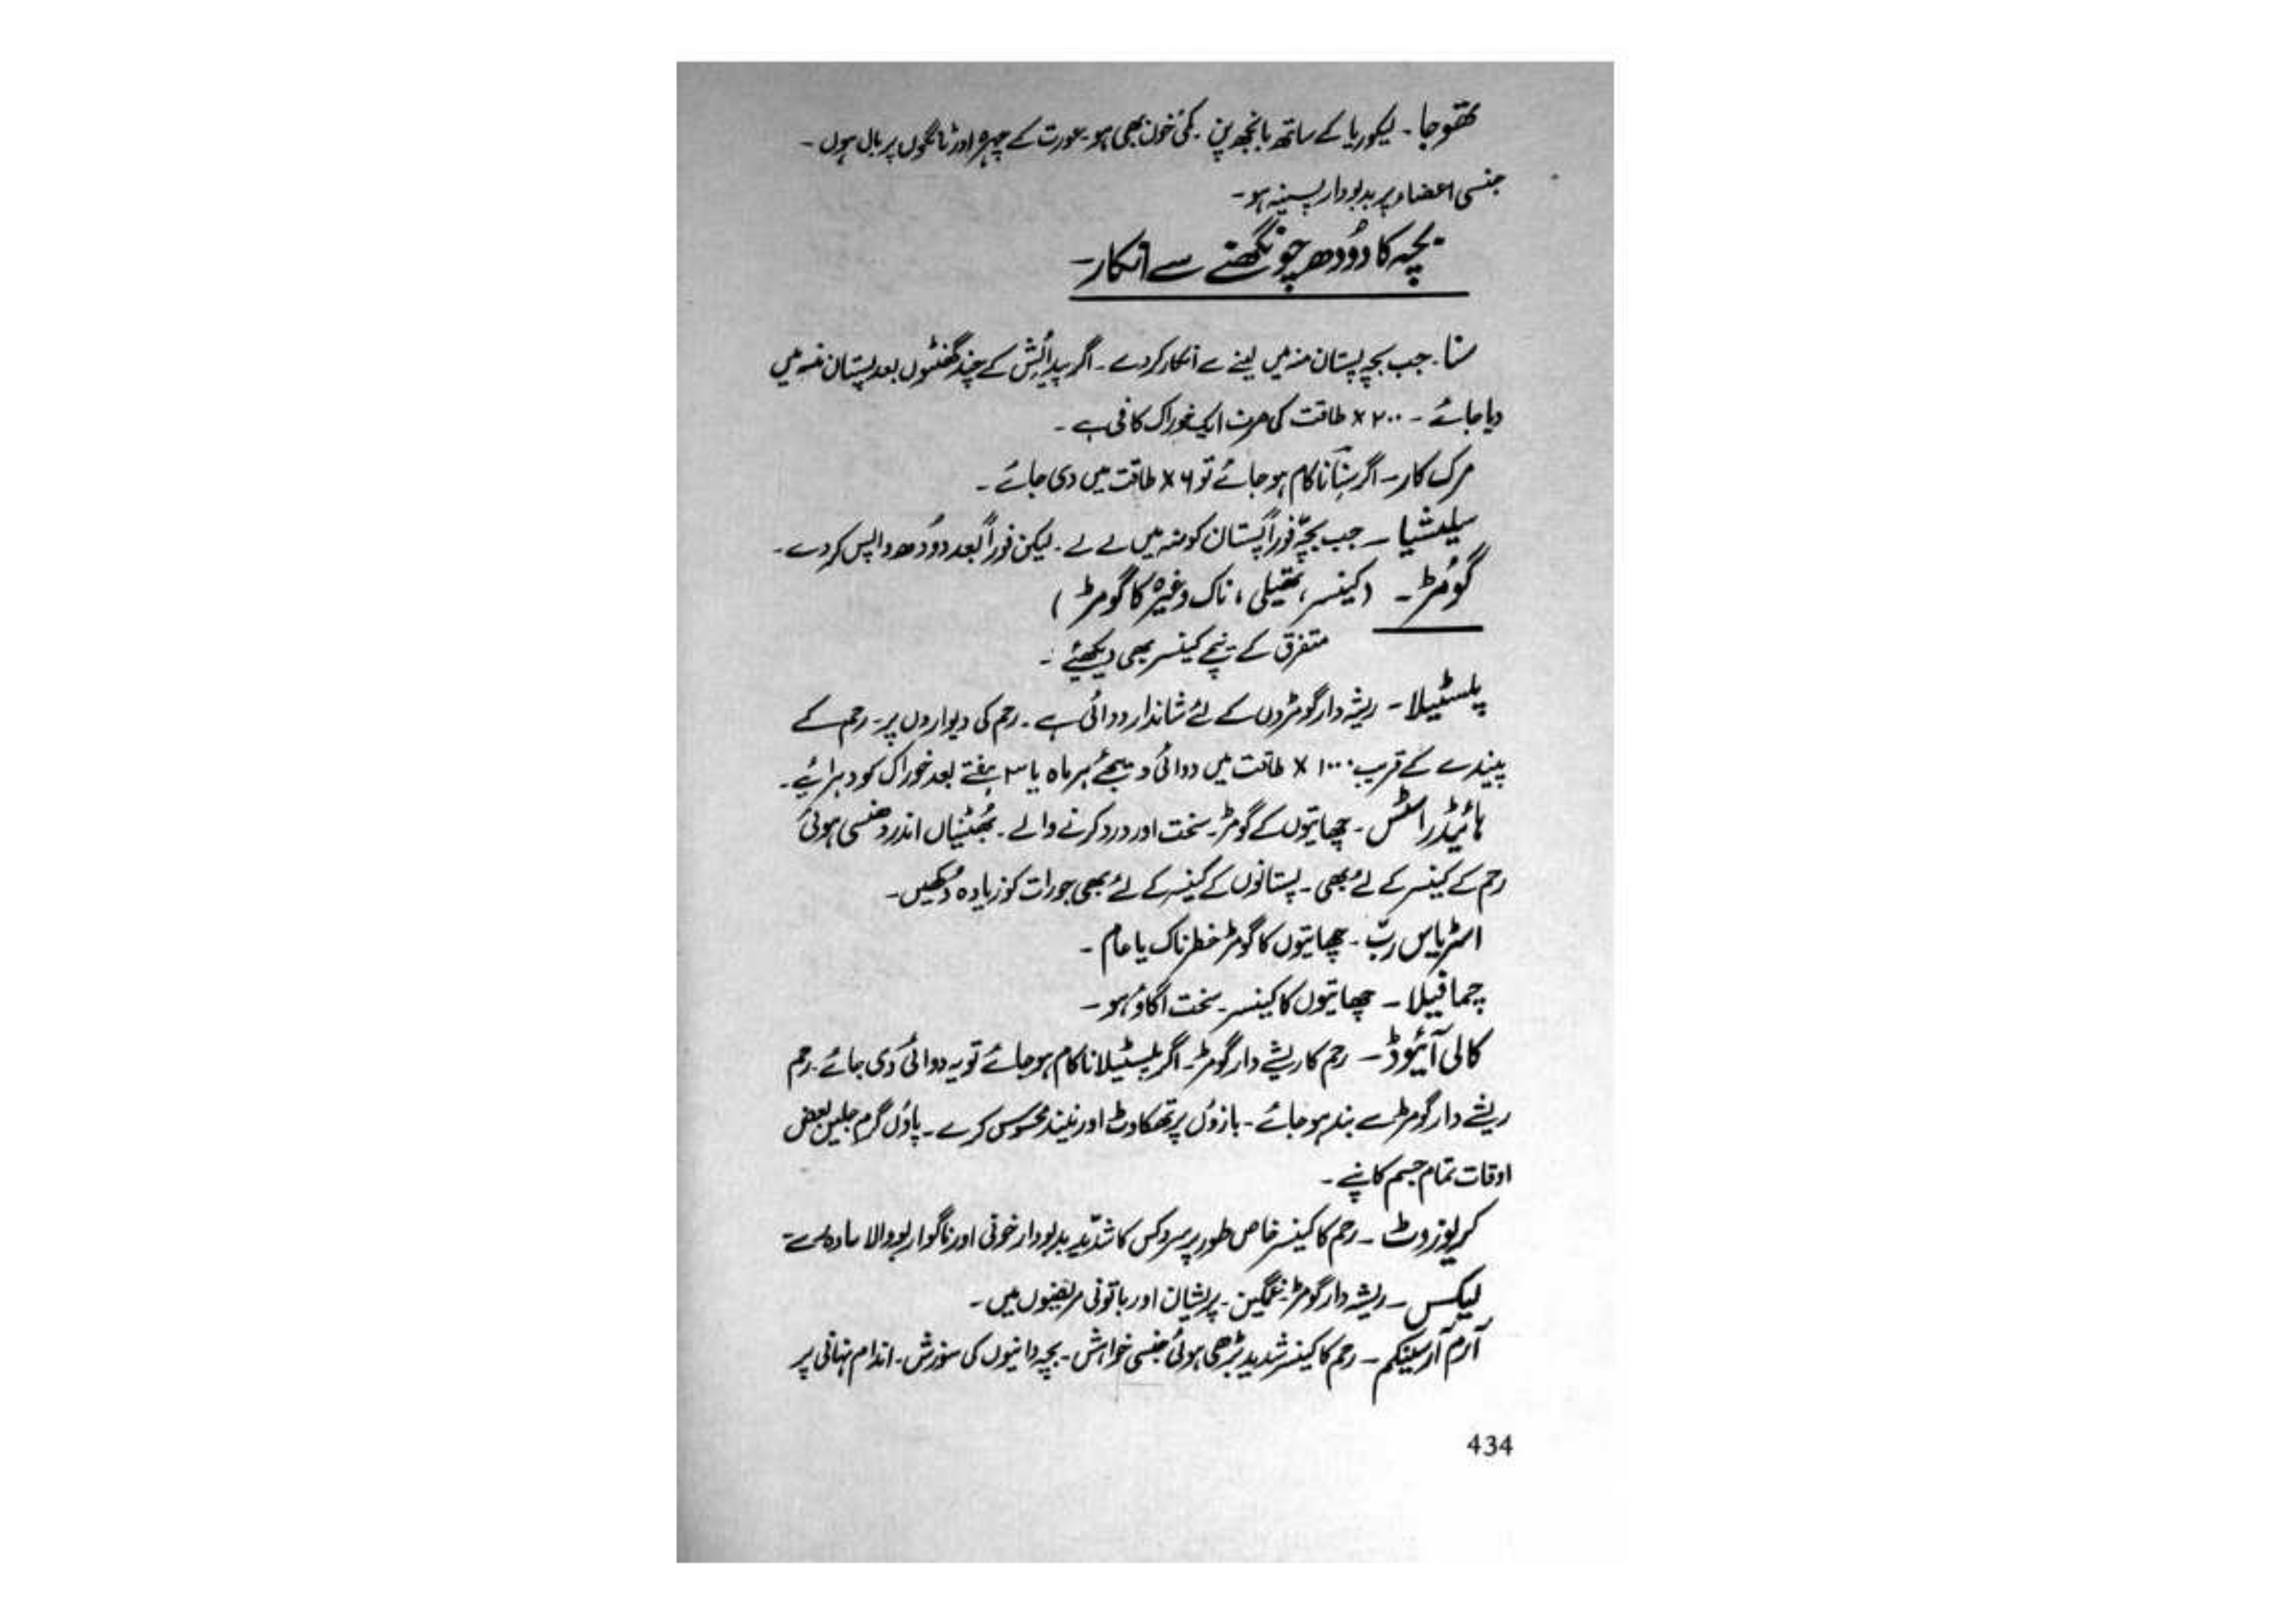 تھوجا۔ لیکوریا کے ساتھ بانجھ پن۔ کمی خون بھی ہو۔ عورت کے چہرہ اور ٹانگوں پر بال ہوں۔
جنسی اعضاء پر بدبودار پسینہ ہو۔
بچہ کا دُودھ چونگھنے سے انکار۔
سنا۔ جب بچہ پستان منہ میں لینے سے انکار کر دے۔ اگر پیدائش کے چند گھنٹوں بعد پستان منہ میں
دیا جائے۔ ۲۰۰ x طاقت کی صرف ایک خوراک کافی ہے۔
مرک کار۔ اگر سنا ناکام ہو جائے تو ۶ x طاقت میں دی جائے۔
سلیشیا۔ جب بچّہ فوراً پستان کو منہ میں لے لے۔ لیکن فوراً بعد دُودھ واپس کر دے۔
گومڑ۔ (کینسر، تھیلی، ناک وغیرہ کا گومڑ)
متفرق کے نیچے کینسر بھی دیکھئے۔
پلسٹیلا۔ ریشہ دار گومڑوں کے لئے شاندار دوائی ہے۔ رحم کی دیواروں پر۔ رحم کے
پیندے کے قریب ۱۰۰۰ x طاقت میں دوائی دیجئے ہر ماہ یا ۳ ہفتے بعد خوراک کو دہرائیے۔
ہائیڈراسٹس۔ چھاتیوں کے گومڑ۔ سخت اور درد کرنے والے۔ بھُٹنیاں اندر دھنسی ہوئی
رحم کے کینسر کے لئے بھی۔ پستانوں کے کینسر کے لئے بھی جو رات کو زیادہ دُکھیں۔
اسٹریاس ربّ۔ چھاتیوں کا گومڑ خطرناک یا عام۔
چمافیلا۔ چھاتیوں کا کینسر۔ سخت اگاؤ ہو۔
کالی آئیوڈ۔ رحم کا ریشے دار گومڑ۔ اگر پلسٹیلا ناکام ہو جائے تو یہ دوائی دی جائے۔ رحم
ریشے دار گومڑ سے بند ہو جائے۔ بازوؤں پر تھکاوٹ اور نیند محسوس کرے۔ پاؤں گرم جلیں بعض
اوقات تمام جسم کانپے۔
کریوزوٹ۔ رحم کا کینسر خاص طور پر سروکس کا شدید بدبودار خونی اور ناگوار بو والا مادہ
لیکس۔ ریشہ دار گومڑ۔ غمگین۔ پریشان اور باتونی مریضوں میں۔
آرم آرسینیکم۔ رحم کا کینسر شدید بڑھی ہوئی جنسی خواہش۔ بچہ دانیوں کی سوزش۔ اندام نہانی پر
434